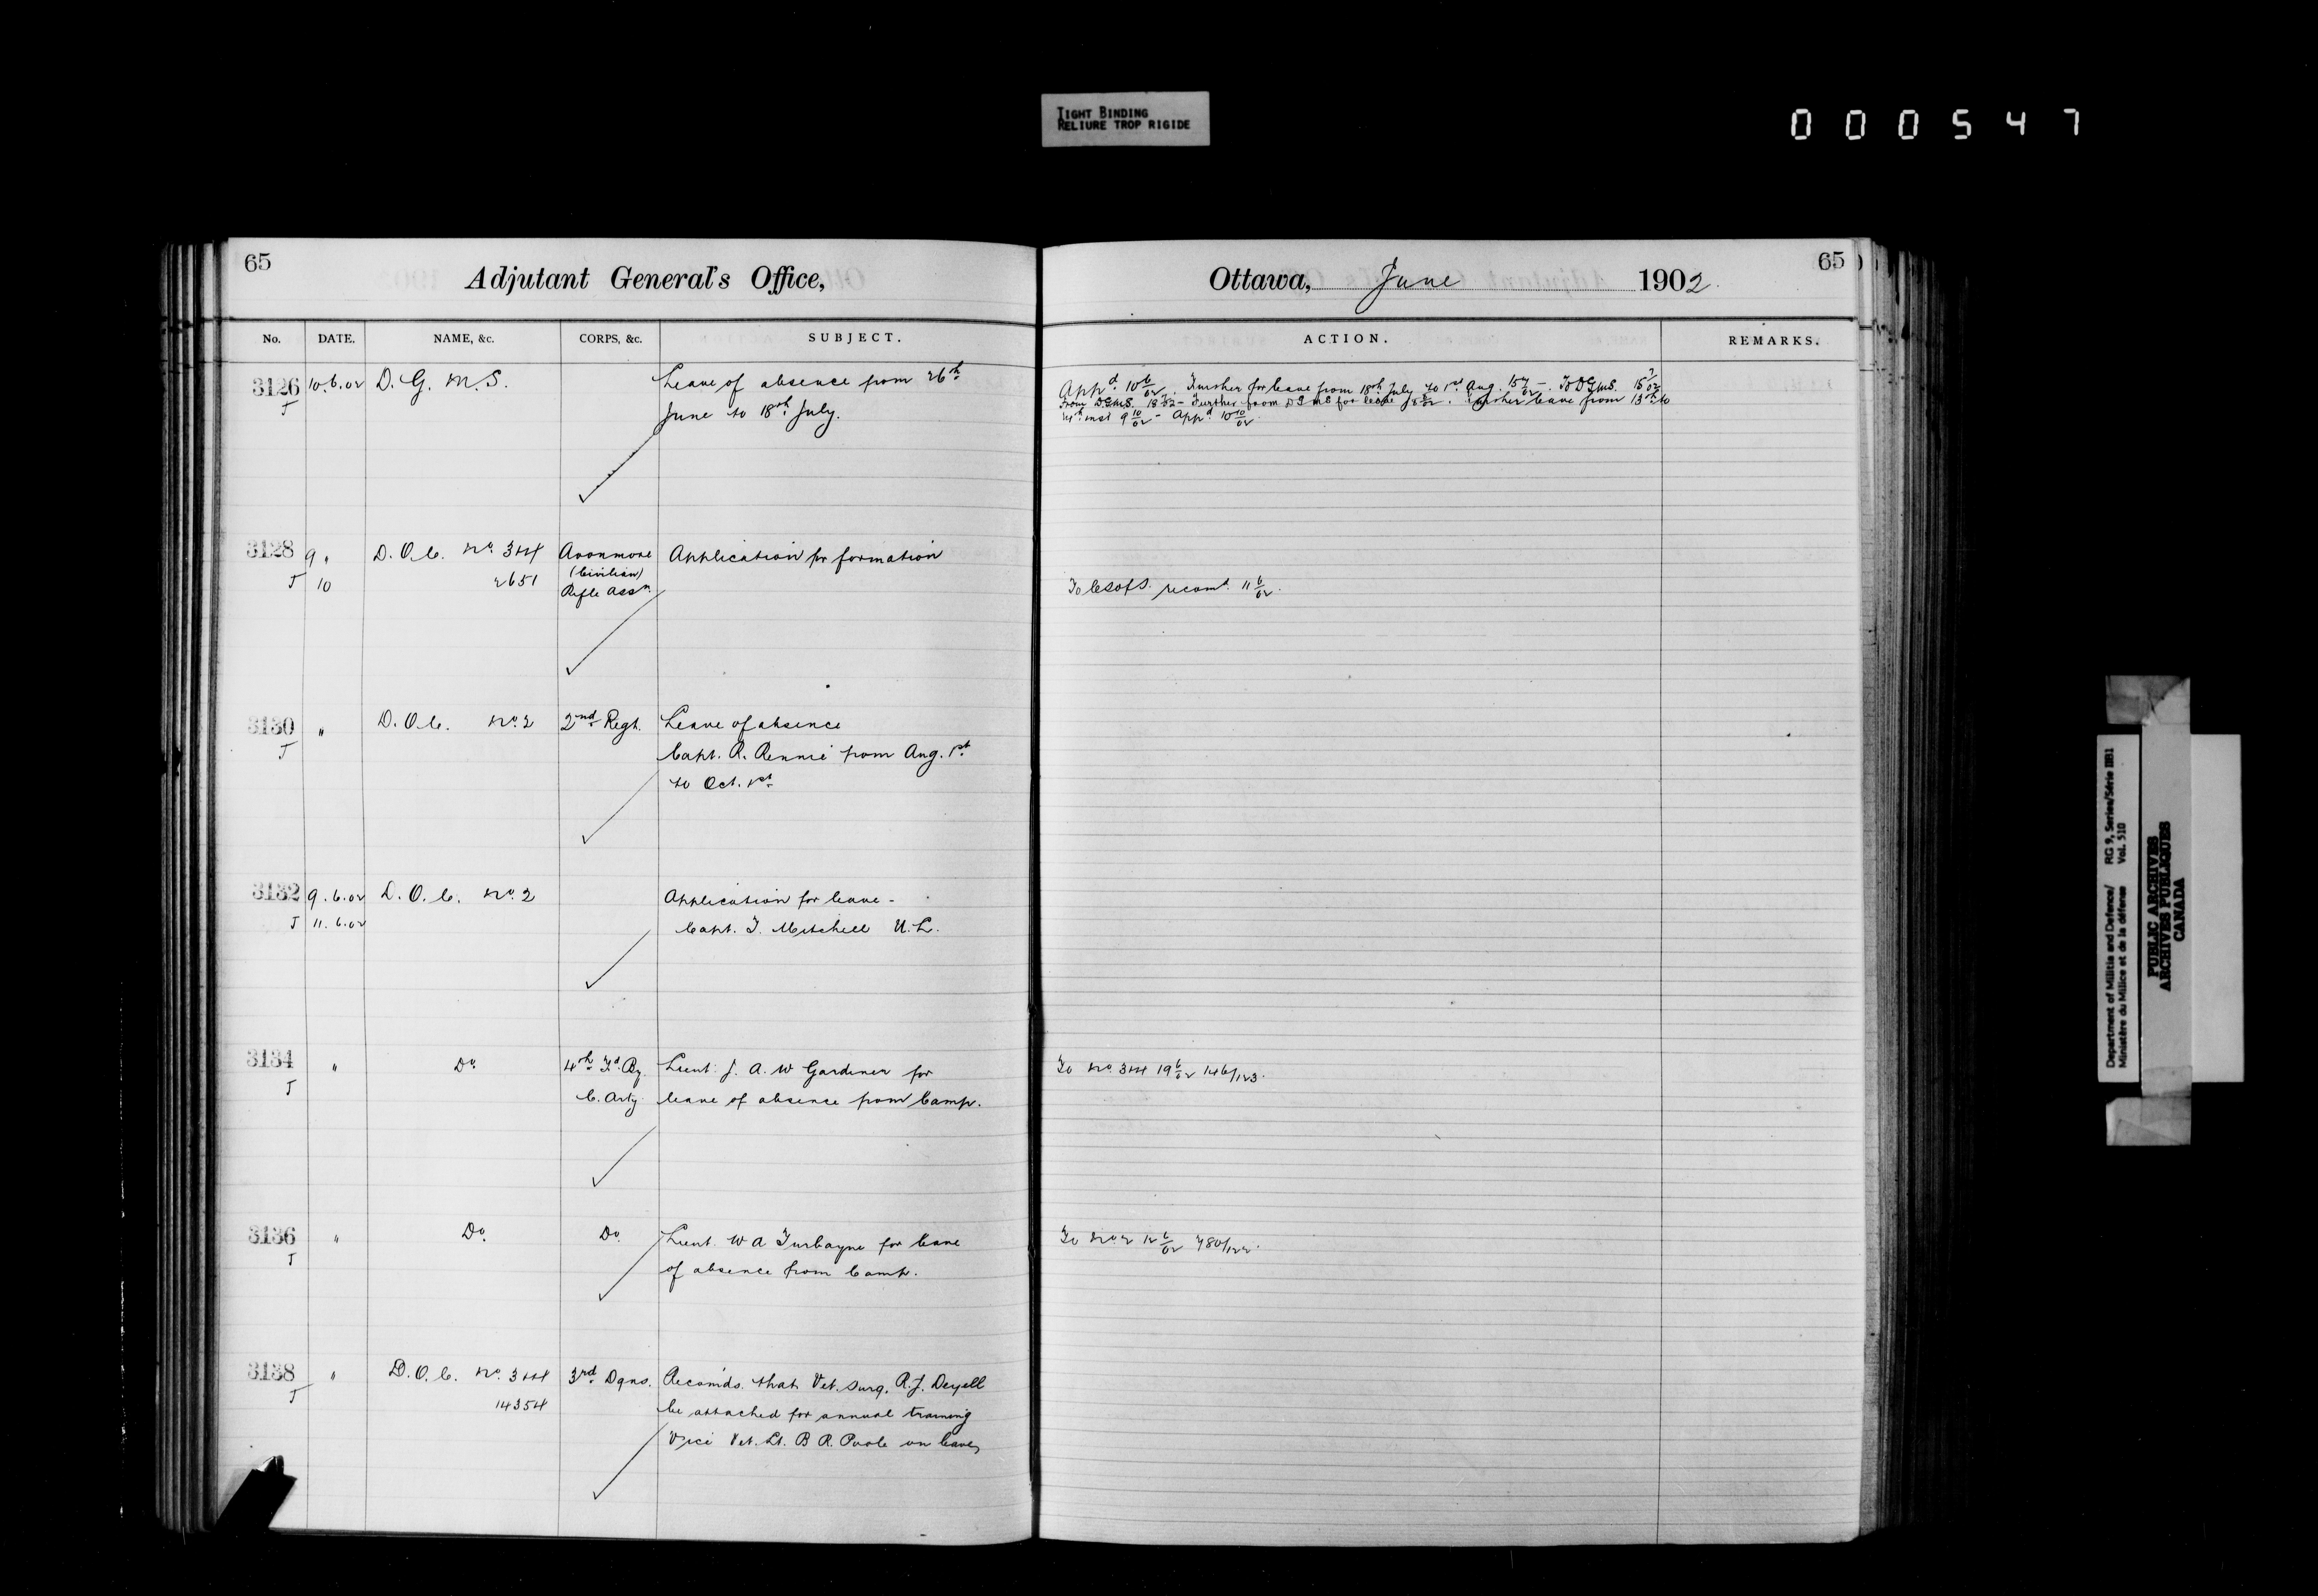 TIGHT BINDING
RELIURE TROP RIGIDE
000547
65
Adjutant General's Office,
No. DATE. NAME, &c. CORPS, &c. SUBJECT.
3126 10.6.02 D. G. M. S. Leave of absence from 26th
J June to 18th July.
3128 9 " D.O.C. No 3&4 Avonmore Application for formation
J 10 2651 (Civilian)
Rifle Assn.
3130 " D.O.C. No. 2 2nd Regt. Leave of absence
J Capt. R. Rennie from Aug. 1st
to Oct. 1st
3132 9.6.02 D.O.C. No. 2 Application for leave -
J 11.6.02 Capt. J. Mitchell U.L.
3134 " Do. 4th Fd. By. Lieut. J. A. W Gardiner for
J C. Arty. leave of absence from Camp.
3136 " Do. Do. Lieut. W A Turbayne for leave
J of absence from Camp.
3138 " D.O.C. No. 3&4 3rd Dgns. Recomds. that Vet. Surg. R.J. Deyell
J 14354 be attached for annual training
Vice Vet. Lt. B R. Poole on leave
65
Ottawa, June 1902.
ACTION. REMARKS.
Appd. 10 6/02. Further for leave from 18th July to 1st Aug. 15 7/02 -. To DGMS. 15 7/02
From DGMS. 18 7/02 - Further from DGMS for leave 8/02. Further leave from 13th to
inst 9 10/02 - Appd. 10 10/02.
To CSofS. recomd. 11 6/02.
To No. 3&4 19 6/02 146/123.
To No 2 12 6/02 780/122.
Department of Militia and Defence/ RG 9, Series/Série IIB1
Ministère du Milice et de la défense Vol. 510
PUBLIC ARCHIVES
ARCHIVES PUBLIQUES
CANADA